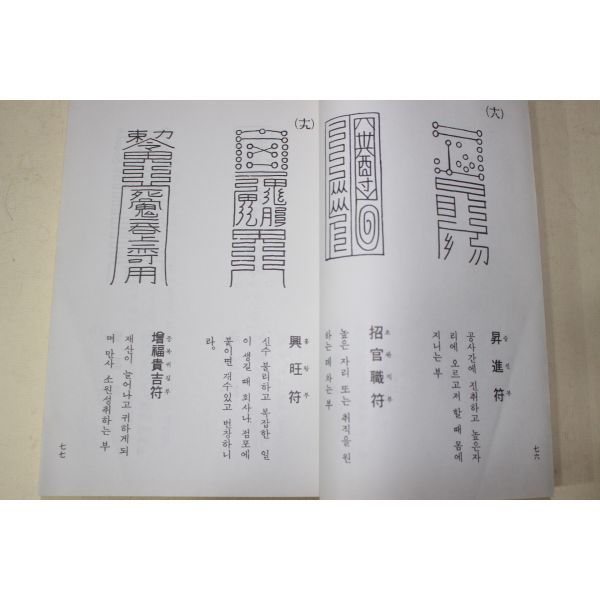 (六)
昇進符
승진부
공사간에 진취하고 높은자
리에 오르고저 할 때 몸에
지니는 부
招官職符
초관직부
높은 자리 또는 취직을 원
하는데 차는 부
七六
(六)
興旺符
흥왕부
신수 불리하고 복잡한 일
이 생길 때 회사나 점포에
꽂이면 재수있고 번창하니
라。
增福貴吉符
증복귀길부
재산이 늘어나고 귀하게 되
며 만사 소원성취하는 부
七七